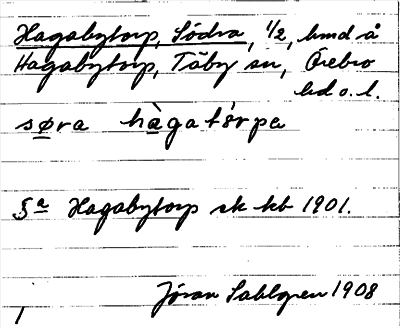 Hagabytorp, Södra, 1/2, hmd å
Hagabytorp, Täby sn, Örebro
hd o. l.
søra hàgatórpa
Sa Hagabytorp sk kb 1901.
Jöran Sahlgren 1908